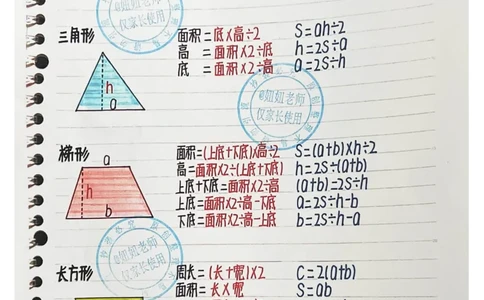 @妞妞老师
仅家长使用
三角形
面积=底×高÷2 S=ah÷2
高=面积×2÷底 h=2S÷a
底=面积×2÷高 a=2S÷h
h
a
@妞妞老师
仅家长使用
梯形
a
h
b
面积=(上底+下底)×高÷2 S=(a+b)×h÷2
高=面积×2÷(上底+下底) h=2S÷(a+b)
上底+下底=面积×2÷高 (a+b)=2S÷h
上底=面积×2÷高-下底 a=2S÷h-b
下底=面积×2÷高-上底 b=2S÷h-a
@妞妞老师
仅家长使用
长方形
周长=(长+宽)×2 C=2(a+b)
面积=长×宽 S=ab